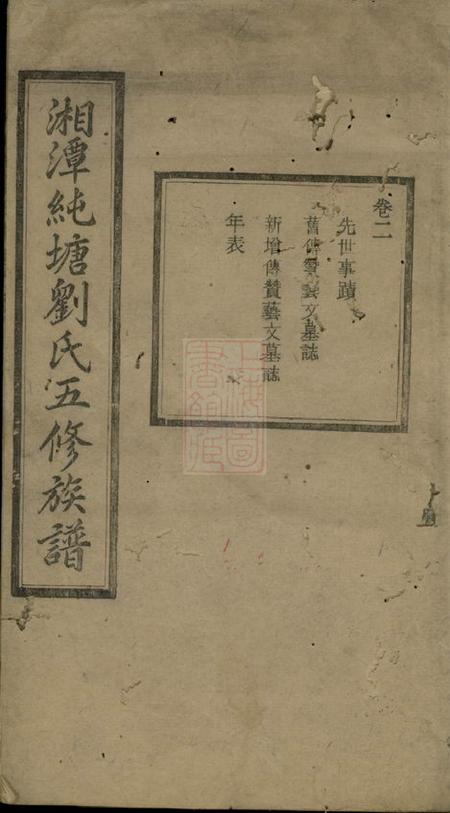 湘潭純塘劉氏五修族譜
卷二
先世事蹟
舊傳贊藝文墓誌
新增傳贊藝文墓誌
年表
上海圖書館藏